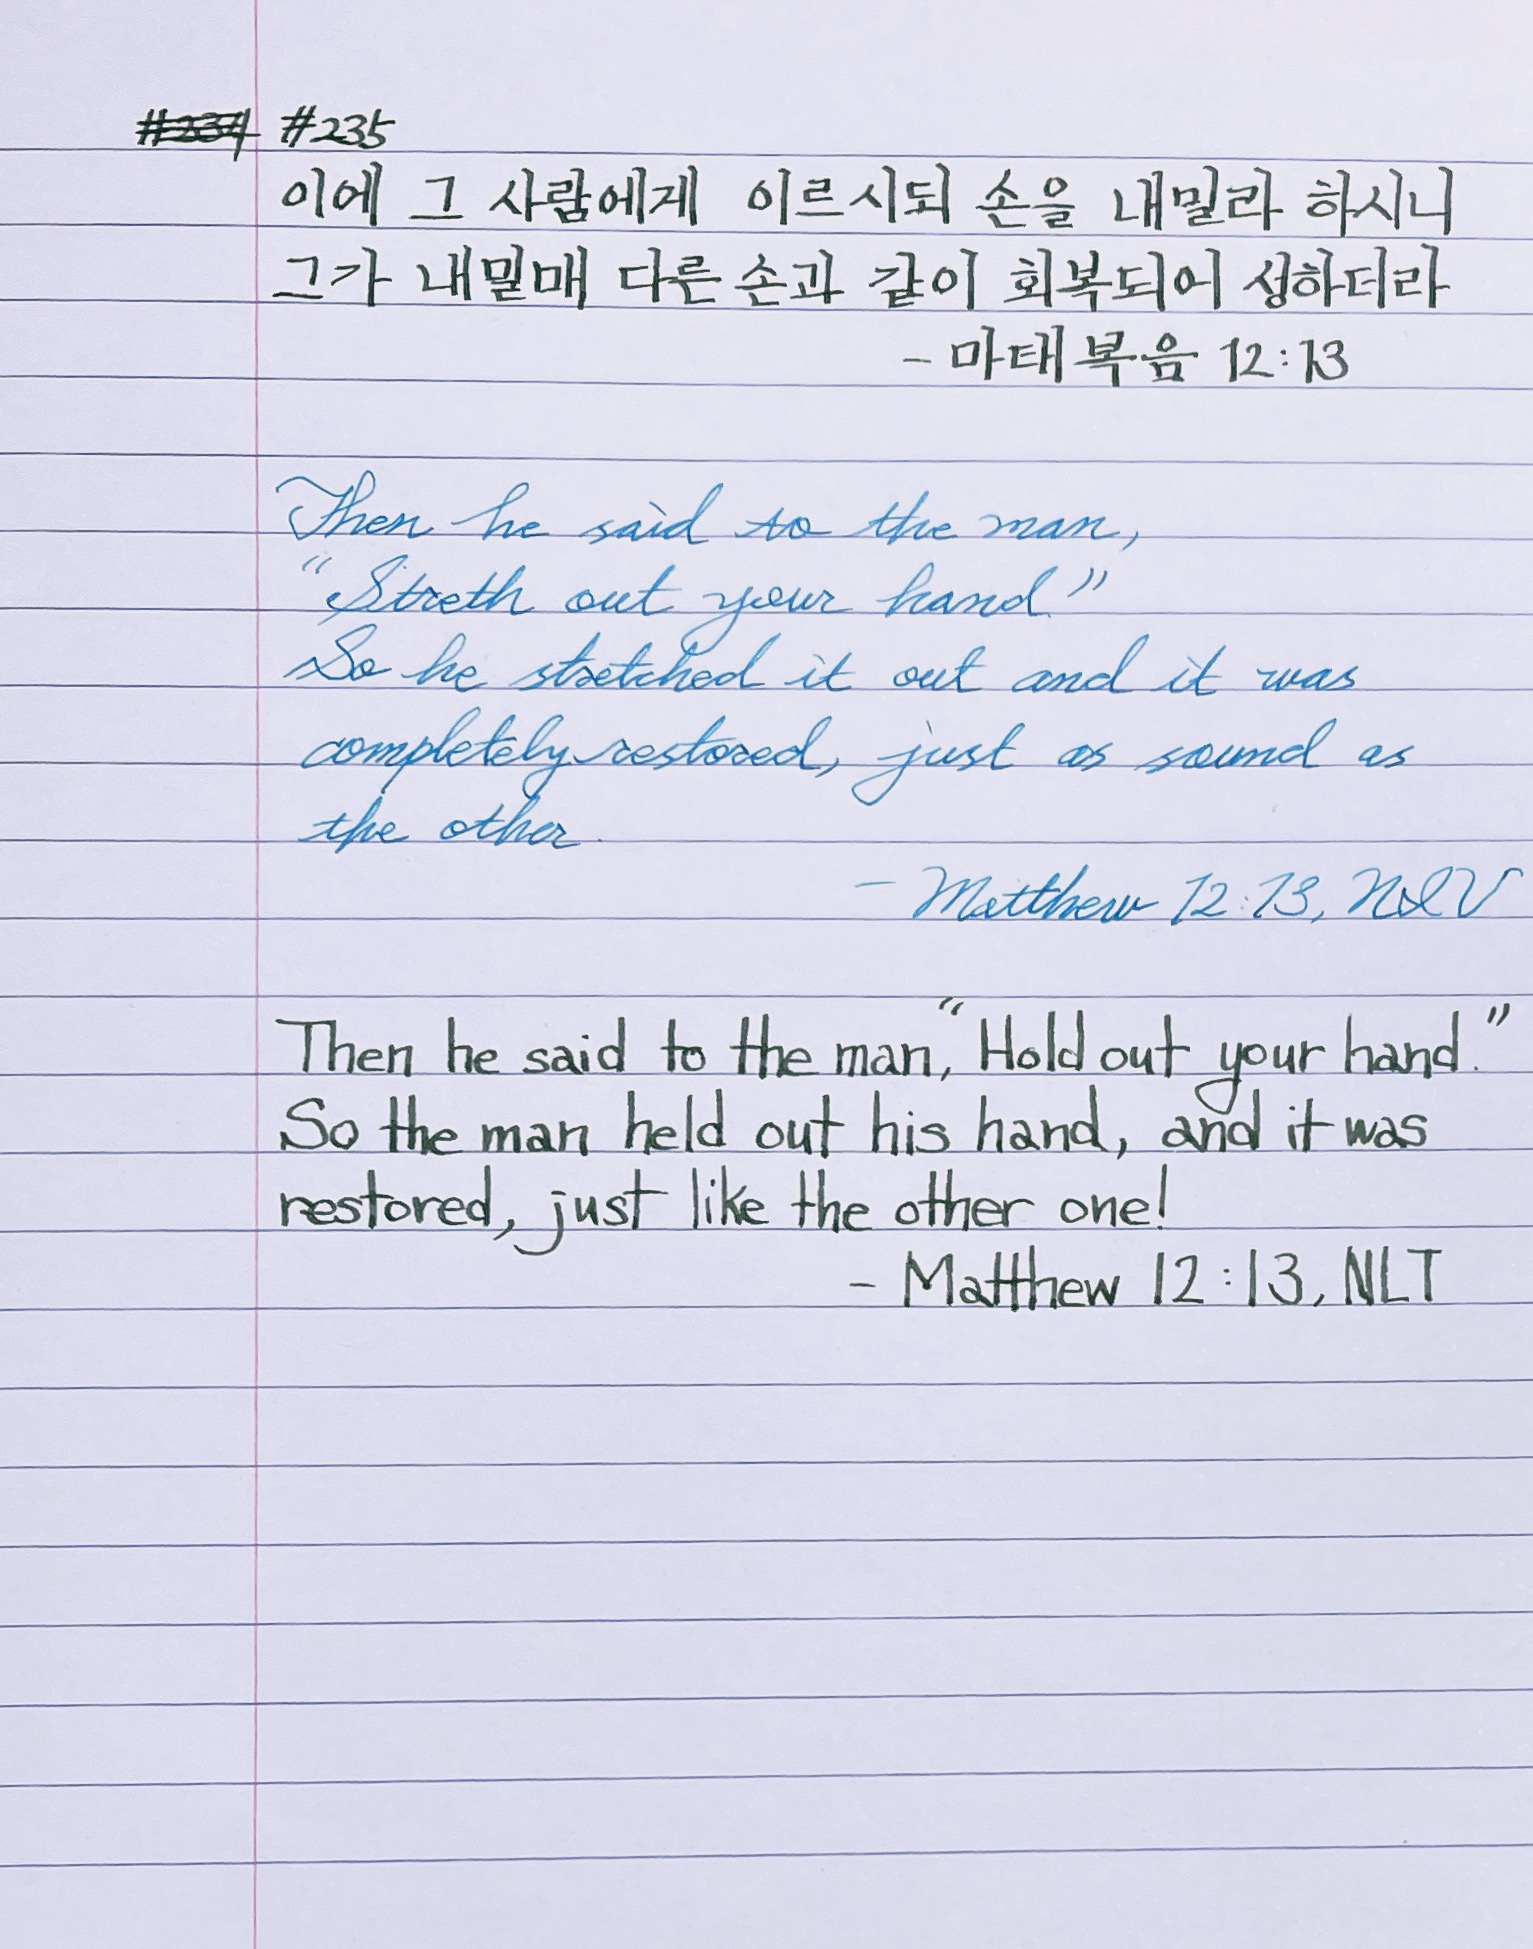 #234 #235
이에 그 사람에게 이르시되 손을 내밀라 하시니
그가 내밀매 다른 손과 같이 회복되어 성하더라
- 마태복음 12:13
Then he said to the man,
"Streth out your hand."
So he stretched it out and it was
completely restored, just as sound as
the other.
- Matthew 12:13, NIV
Then he said to the man, "Hold out your hand."
So the man held out his hand, and it was
restored, just like the other one!
- Matthew 12:13, NLT